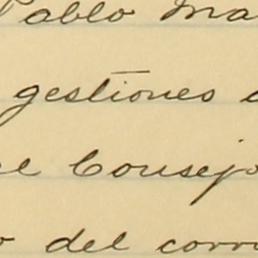 Pablo Ma
gestiones
el Consejo
del corri